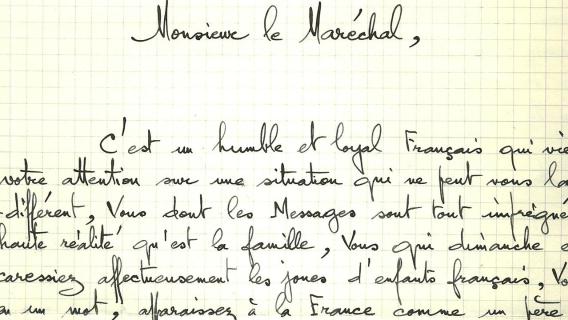 Monsieur le Maréchal,
C'est un humble et loyal Français qui vie
votre attention sur une situation qui ne peut vous la
différent, Vous dont les Messages sont tout imprégné
haute réalité qu'est la famille, Vous qui dimanche e
caressiez affectueusement les joues d'enfants français, Vo
en un mot, apparaissez à la France comme un père